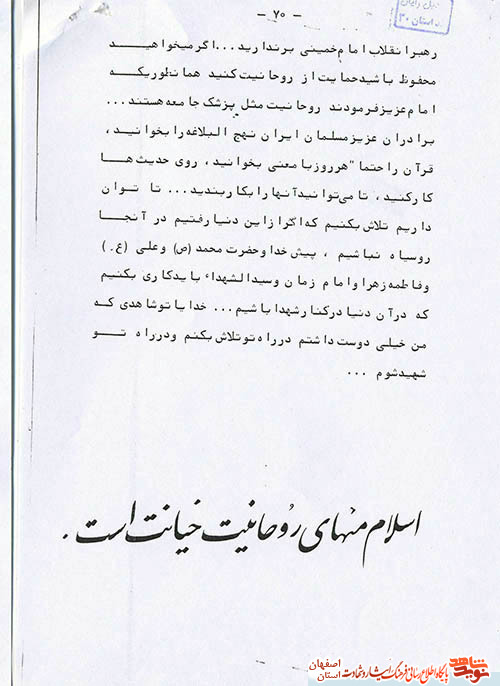 - ۷۰ -
رهبر انقلاب امام خمینی برندارید...اگر میخواهید
محفوظ باشید حمایت از روحانیت کنید همانطوریکه
امام عزیز فرمودند روحانیت مثل پزشک جامعه هستند...
برادران عزیز مسلمان ایران نهج البلاغه را بخوانید،
قرآن را حتما" هرروز با معنی بخوانید، روی حدیث ها
کار کنید، تا می‌توانید آنها را بکار بندید... تا توان
داریم تلاش بکنیم که اگر از این دنیا رفتیم در آنجا
روسیاه نباشیم، پیش خدا و حضرت محمد (ص) و علی (ع)
و فاطمه زهرا و امام زمان و سیدالشهداء باید کاری بکنیم
که در آن دنیا در کنار شهدا باشیم... خدایا تو شاهدی که
من خیلی دوست داشتم در راه تو تلاش بکنم و در راه تو
شهید شوم ...
اسلام منهای روحانیت خیانت است.
نوید شاهد پایگاه اطلاع رسانی فرهنگ ایثار و شهادت استان اصفهان